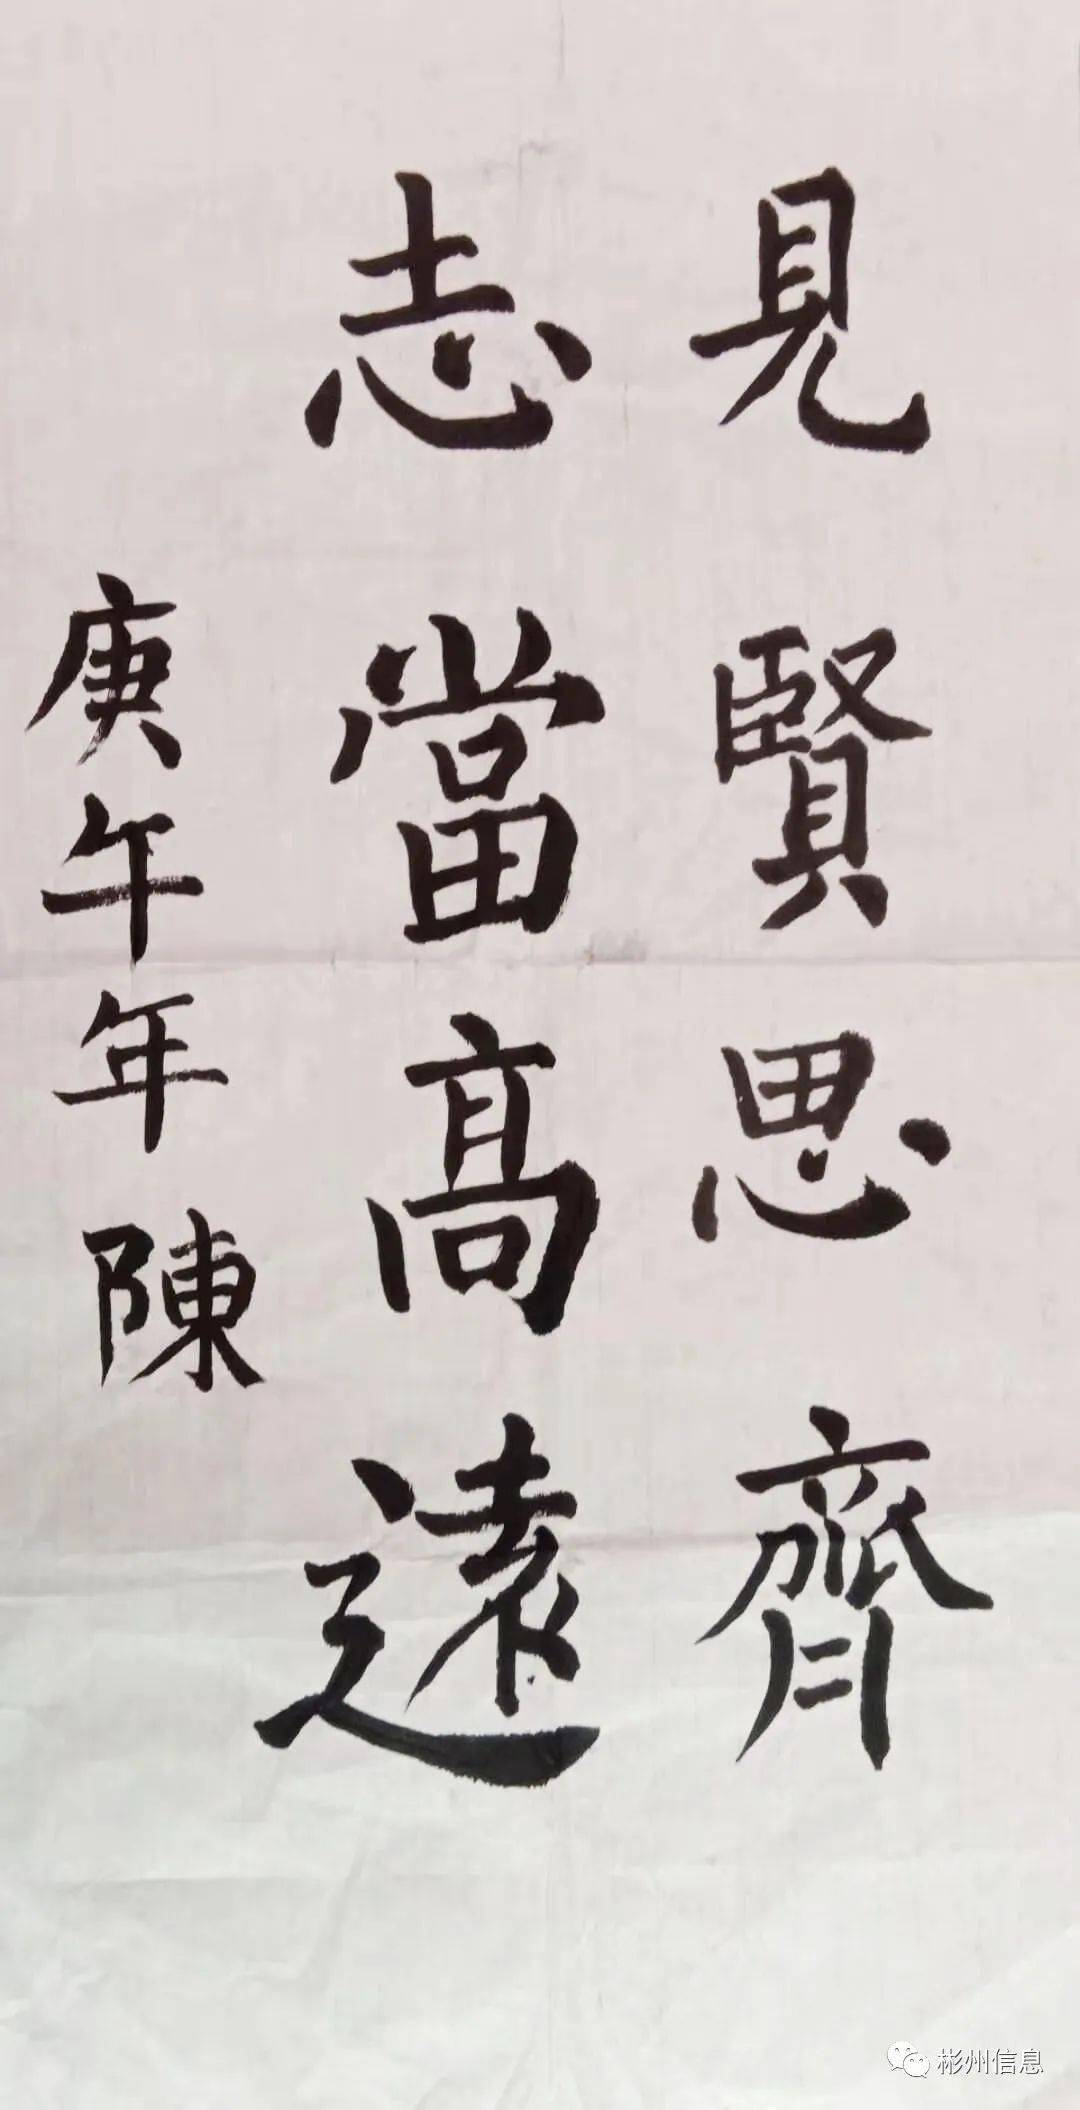 見賢思齊
志當高遠
庚午年陳
彬州信息